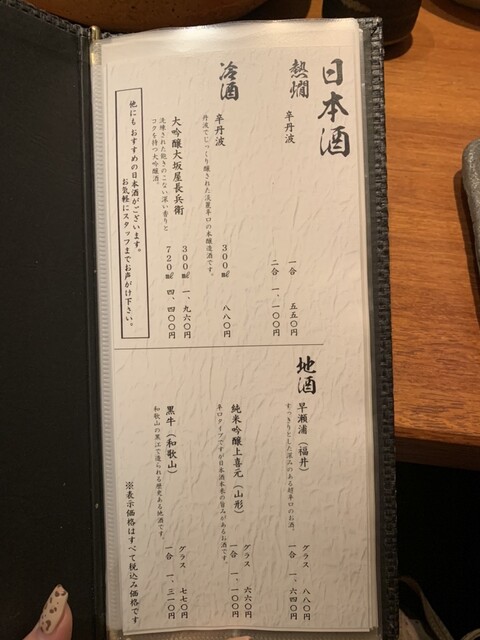 日本酒
熱燗
辛丹波
一合 五五〇円
二合 一、一〇〇円
冷酒
辛丹波
丹波でじっくり醸された淡麗辛口の本醸造酒です。
300㎖ 八八〇円
大吟醸大坂屋長兵衛
洗練された飽きのこない深い香りと
コクを持つ大吟醸酒。
300㎖ 一、九六〇円
720㎖ 四、四〇〇円
他にもおすすめの日本酒がございます。
お気軽にスタッフまでお声がけ下さい。
地酒
早瀬浦(福井)
すっきりとした深みのある超辛口のお酒。
グラス 八八〇円
一合 一、六四〇円
純米吟醸上喜元(山形)
辛口タイプですが日本酒本来の旨みがあるお酒です。
グラス 六六〇円
一合 一、一〇〇円
黒牛(和歌山)
和歌山の黒江で造られる歴史ある地酒です。
グラス 七七〇円
一合 一、三一〇円
※表示価格はすべて税込み価格です